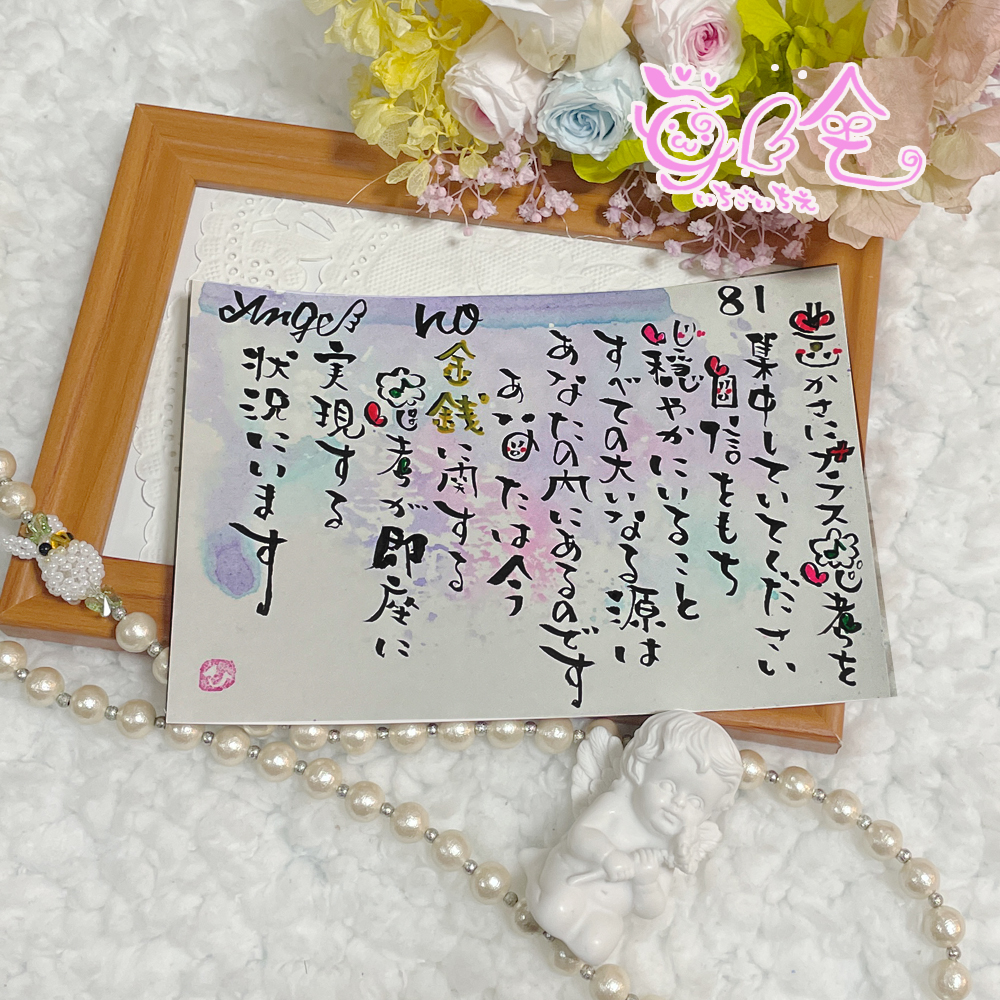 Angel no 81
豊かさにプラス思考を
集中していてください
自信をもち
心穏やかにいること
すべての大いなる源は
あなたの内にあるのです
あなたは今
金銭に関する
思考が即座に
実現する
状況にいます
いちごいちえ